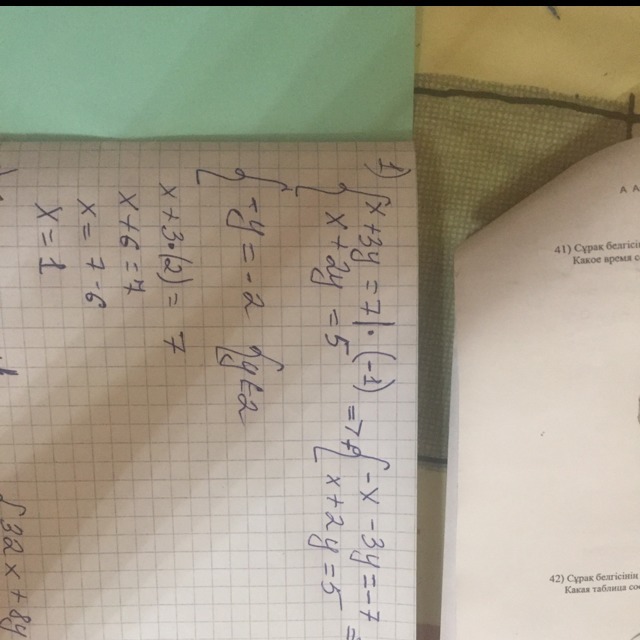 1) { x + 3y = 7 | · (-1) => { -x - 3y = -7 =
x + 2y = 5 x + 2y = 5
{ -y = -2 { y = 2
x + 3·(2) = 7
x + 6 = 7
x = 7 - 6
x = 1
41) Сұрақ белгісін
Какое время со
42) Сұрақ белгісінің
Какая таблица соо